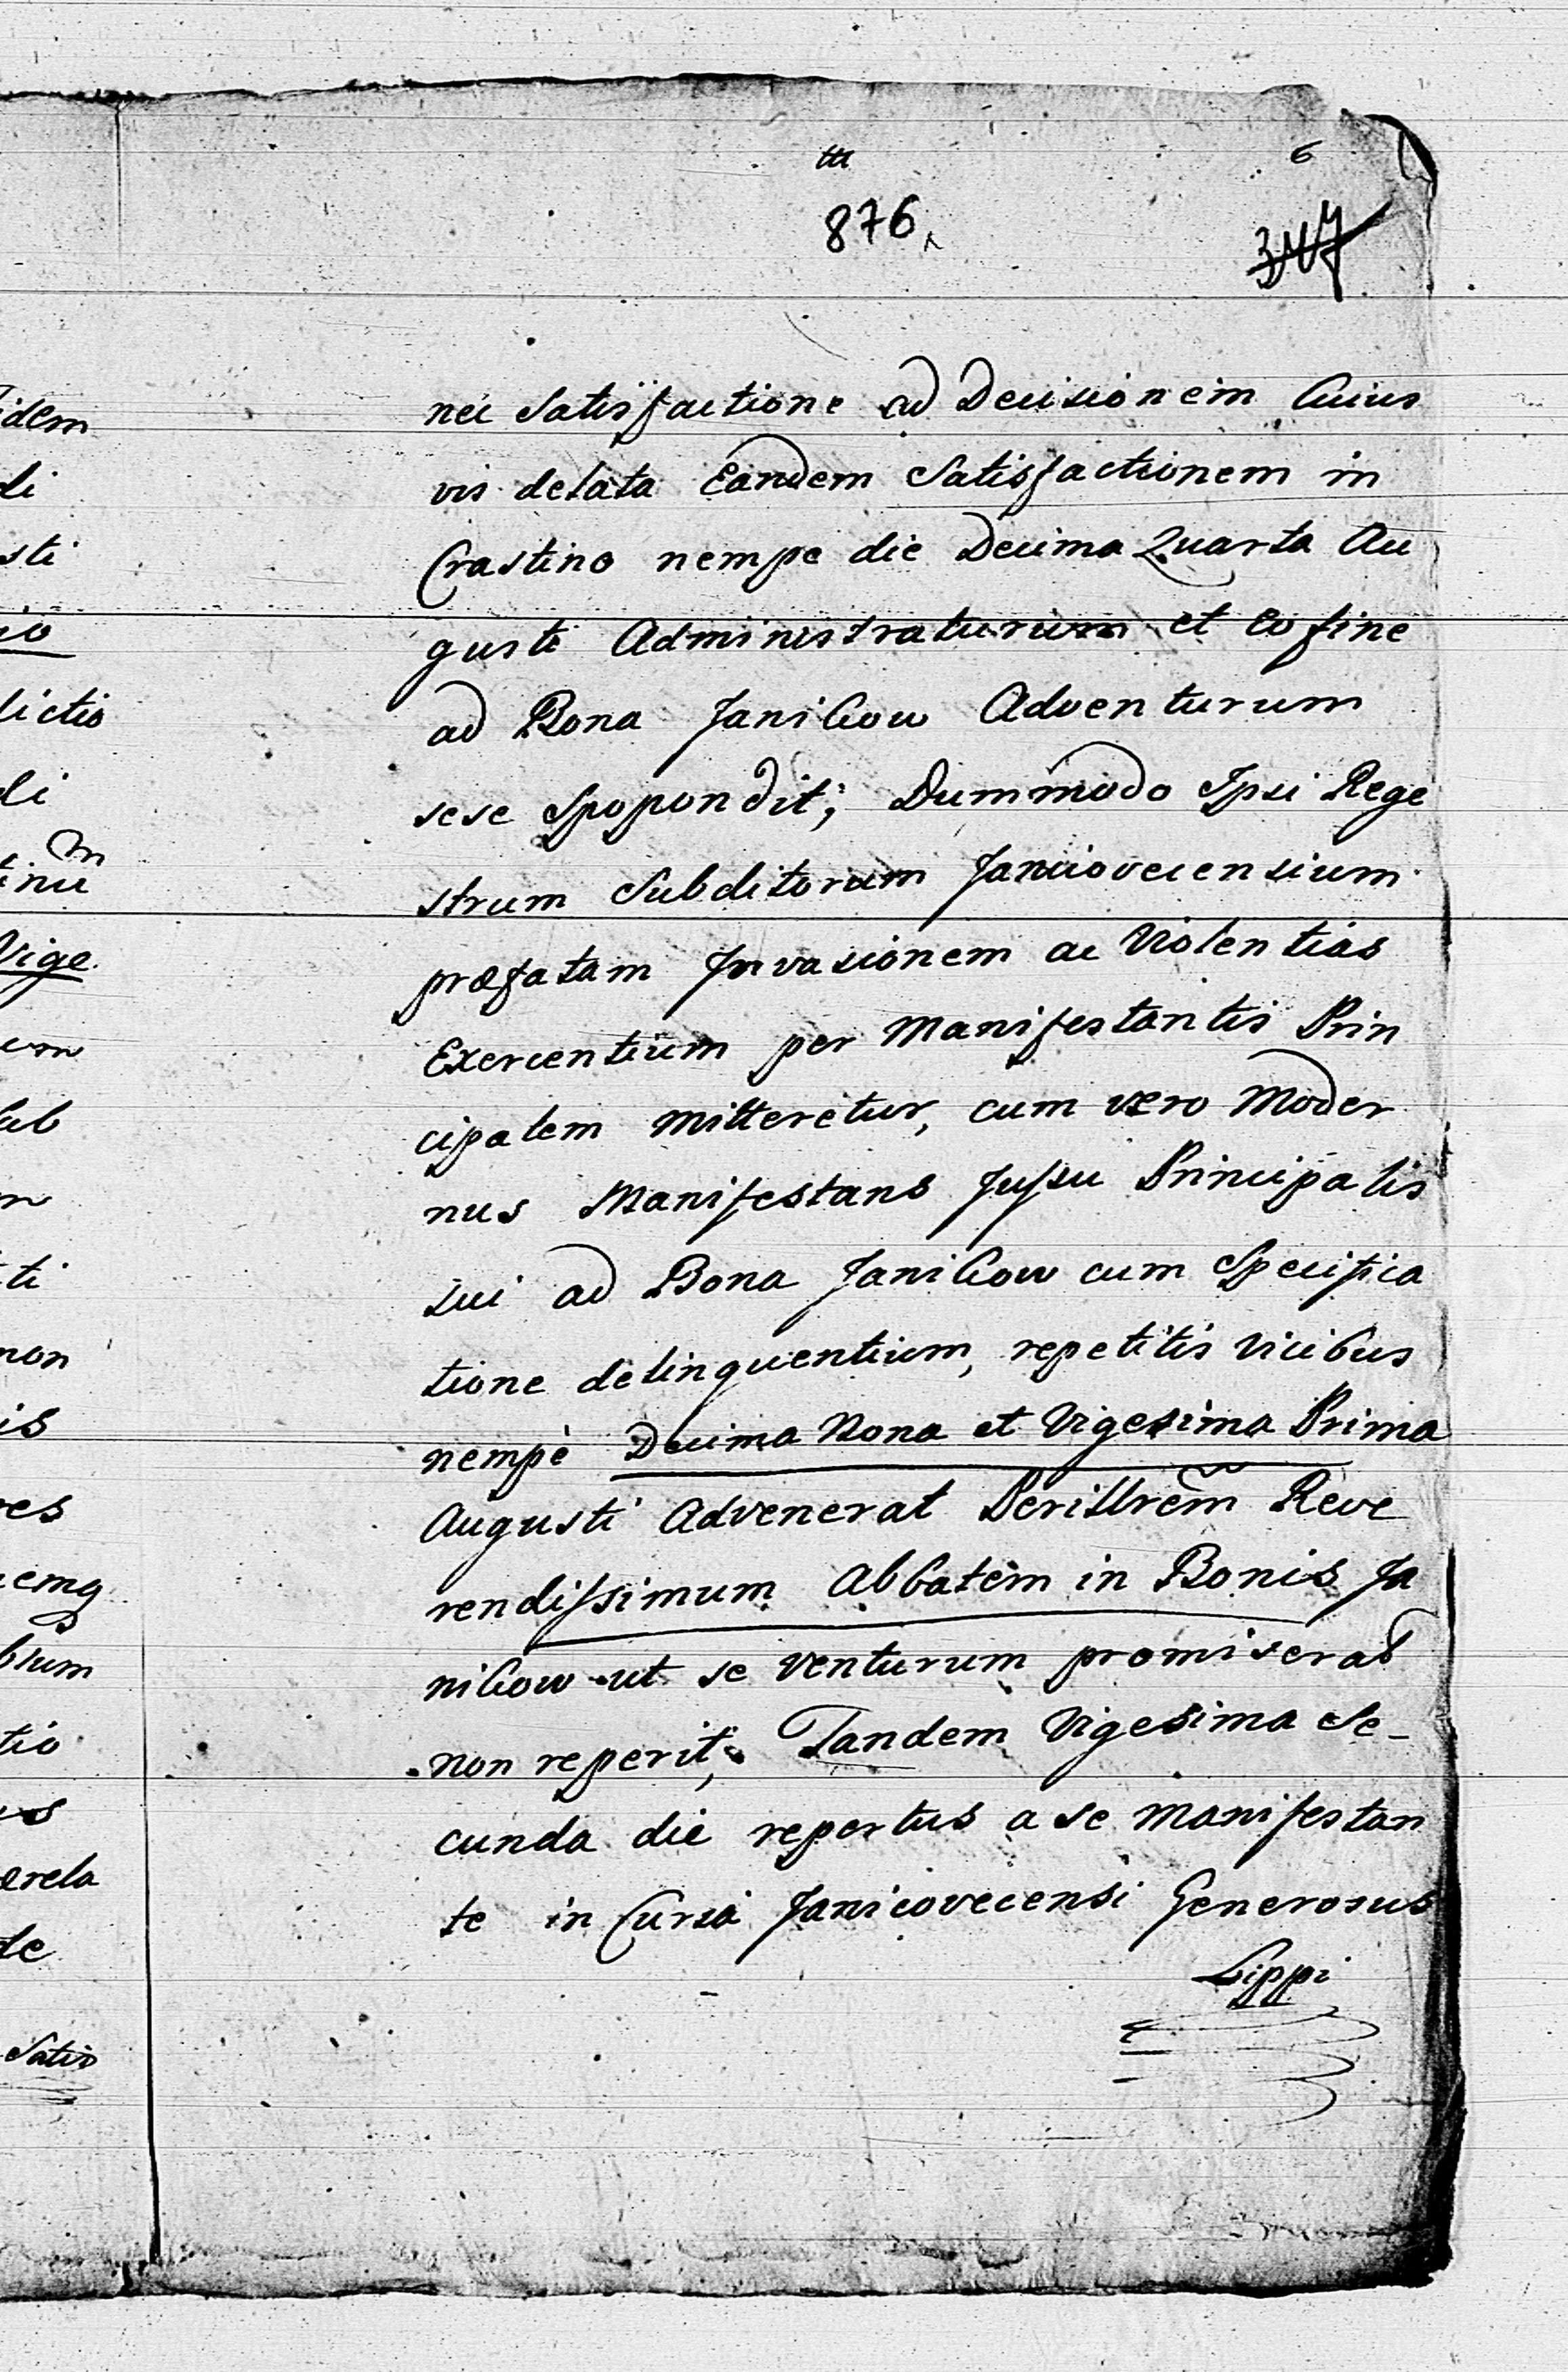 876
6
347
nec Satisfactione ad Decisionem Cuius
vis delata Eandem Satisfactionem in
Crastino nempe die Decima Quarta Au
gusti Administraturum et eo fine
ad Bona Janikow Adventurum
sese Spopondit; Dummodo Ipsi Rege
strum Subditorum Janicoveciensium
præfatam Invasionem ac Violentias
Exercentium per Manifestantis Prin
cipalem mitteretur, cum vero Moder
nus Manifestans Jussu Principalis
sui ad Bona Janikow cum Specifica
tione delinquentium, repetitis vicibus
nempè Decima Nona et Vigesima Prima
Augusti Advenerat Perillrem̃ Reve
rendissimum Abbatem in Bonis Ja
nikow ut se venturum promiserat
non reperit; Tandem Vigesima Se-
cunda die repertus a se manifestan
te in Curia Janicovecensi Generosus
Lippi
idem
di
sti
io
lictio
di
Vige.
ti
non
is
res
tio
us
rela
de
Satis